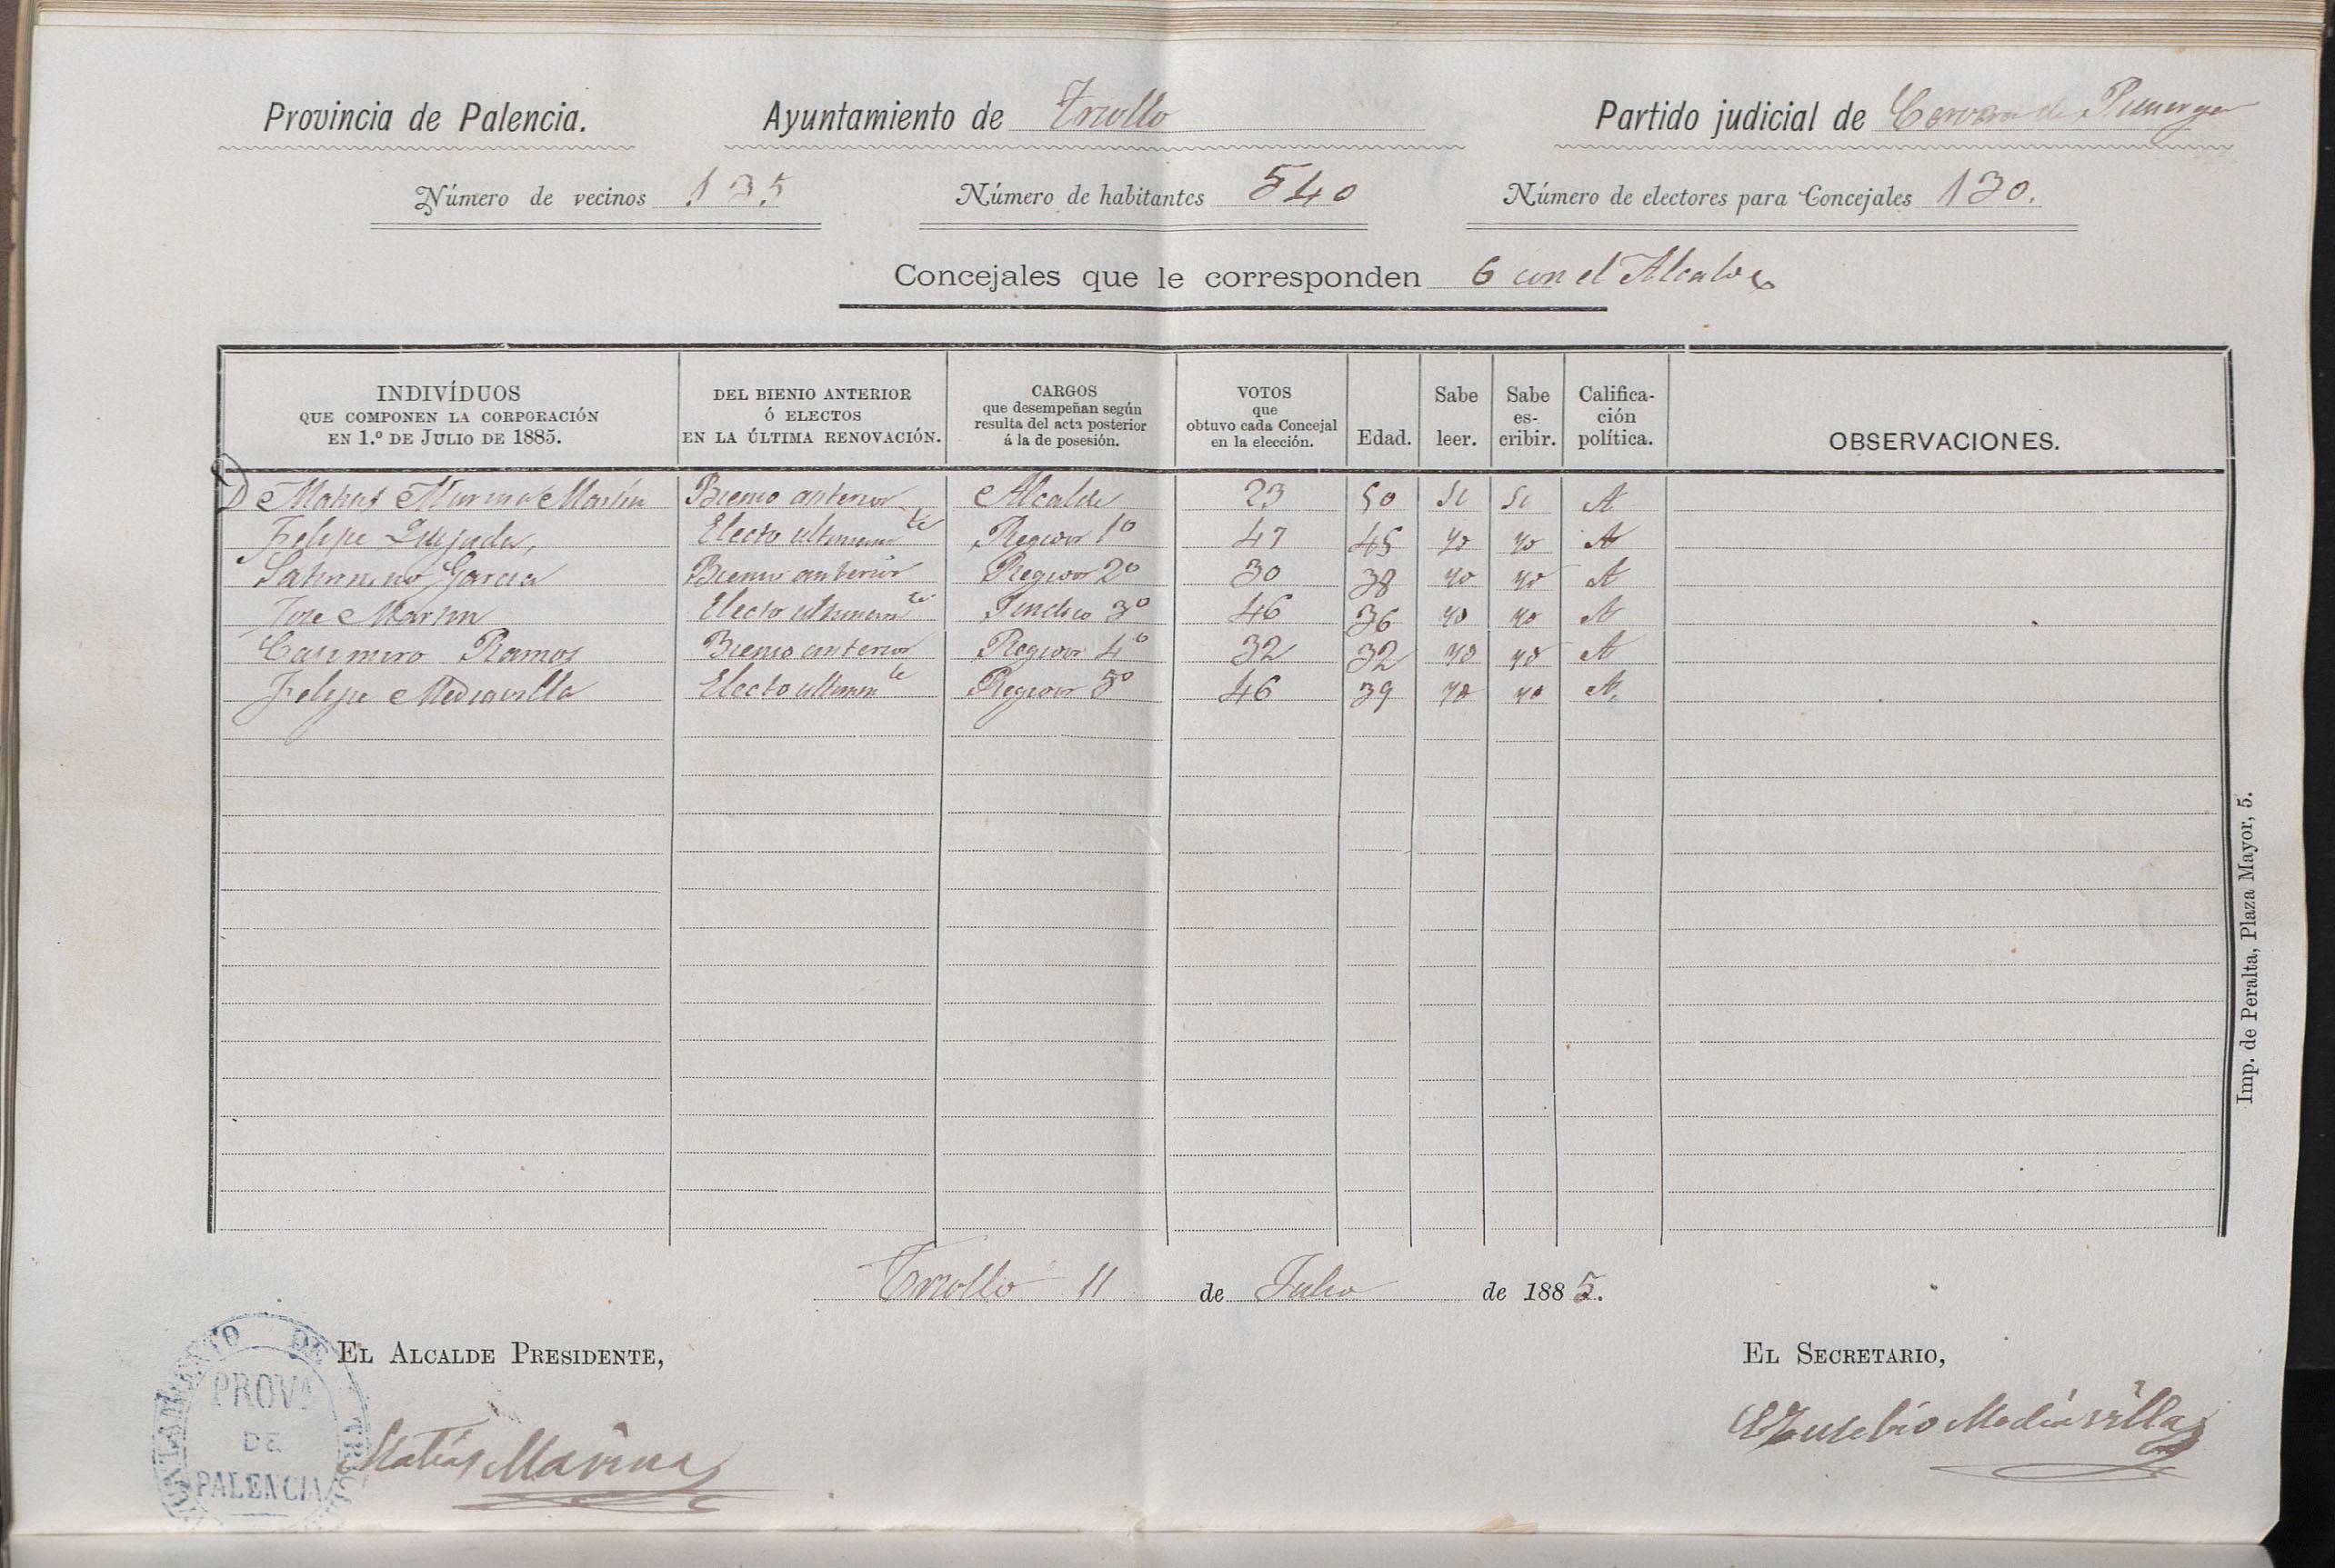 Provincia de Palencia. Ayuntamiento de Triollo Partido judicial de Cervera de Pisuerga
Número de vecinos 135 Número de habitantes 540 Número de electores para Concejales 130.
Concejales que le corresponden 6 con el Alcalde
INDIVÍDUOS QUE COMPONEN LA CORPORACIÓN EN 1.º DE JULIO DE 1885. DEL BIENIO ANTERIOR Ó ELECTOS EN LA ÚLTIMA RENOVACIÓN. CARGOS que desempeñan según resulta del acta posterior á la de posesión. VOTOS que obtuvo cada Concejal en la elección. Edad. Sabe leer. Sabe es-cribir. Califica-ción política. OBSERVACIONES.
D Matias Marina Martin Bienio anterior Alcalde 23 50 Si Si A
Felipe Quijada, Electo ultimamte Regidor 1º 47 45 yd yd A
Saturnino Garcia Bienio anterior Regidor 2º 30 38 yd yd A
Jose Martin Electo ultimamte Sindico 3º 46 36 yd yd A
Casimiro Ramos Bienio anterior Regidor 4º 32 32 yd yd A
Felipe Mediavilla Electo ultimamte Regidor 5º 46 39 yd yd A.
Imp. de Peralta, Plaza Mayor, 5.
Triollo 11 de Julio de 1885.
EL ALCALDE PRESIDENTE, EL SECRETARIO,
AYUNTAMIENTO DE
PROVA
DE
PALENCIA
Matías Marina
Eusebio Mediavilla